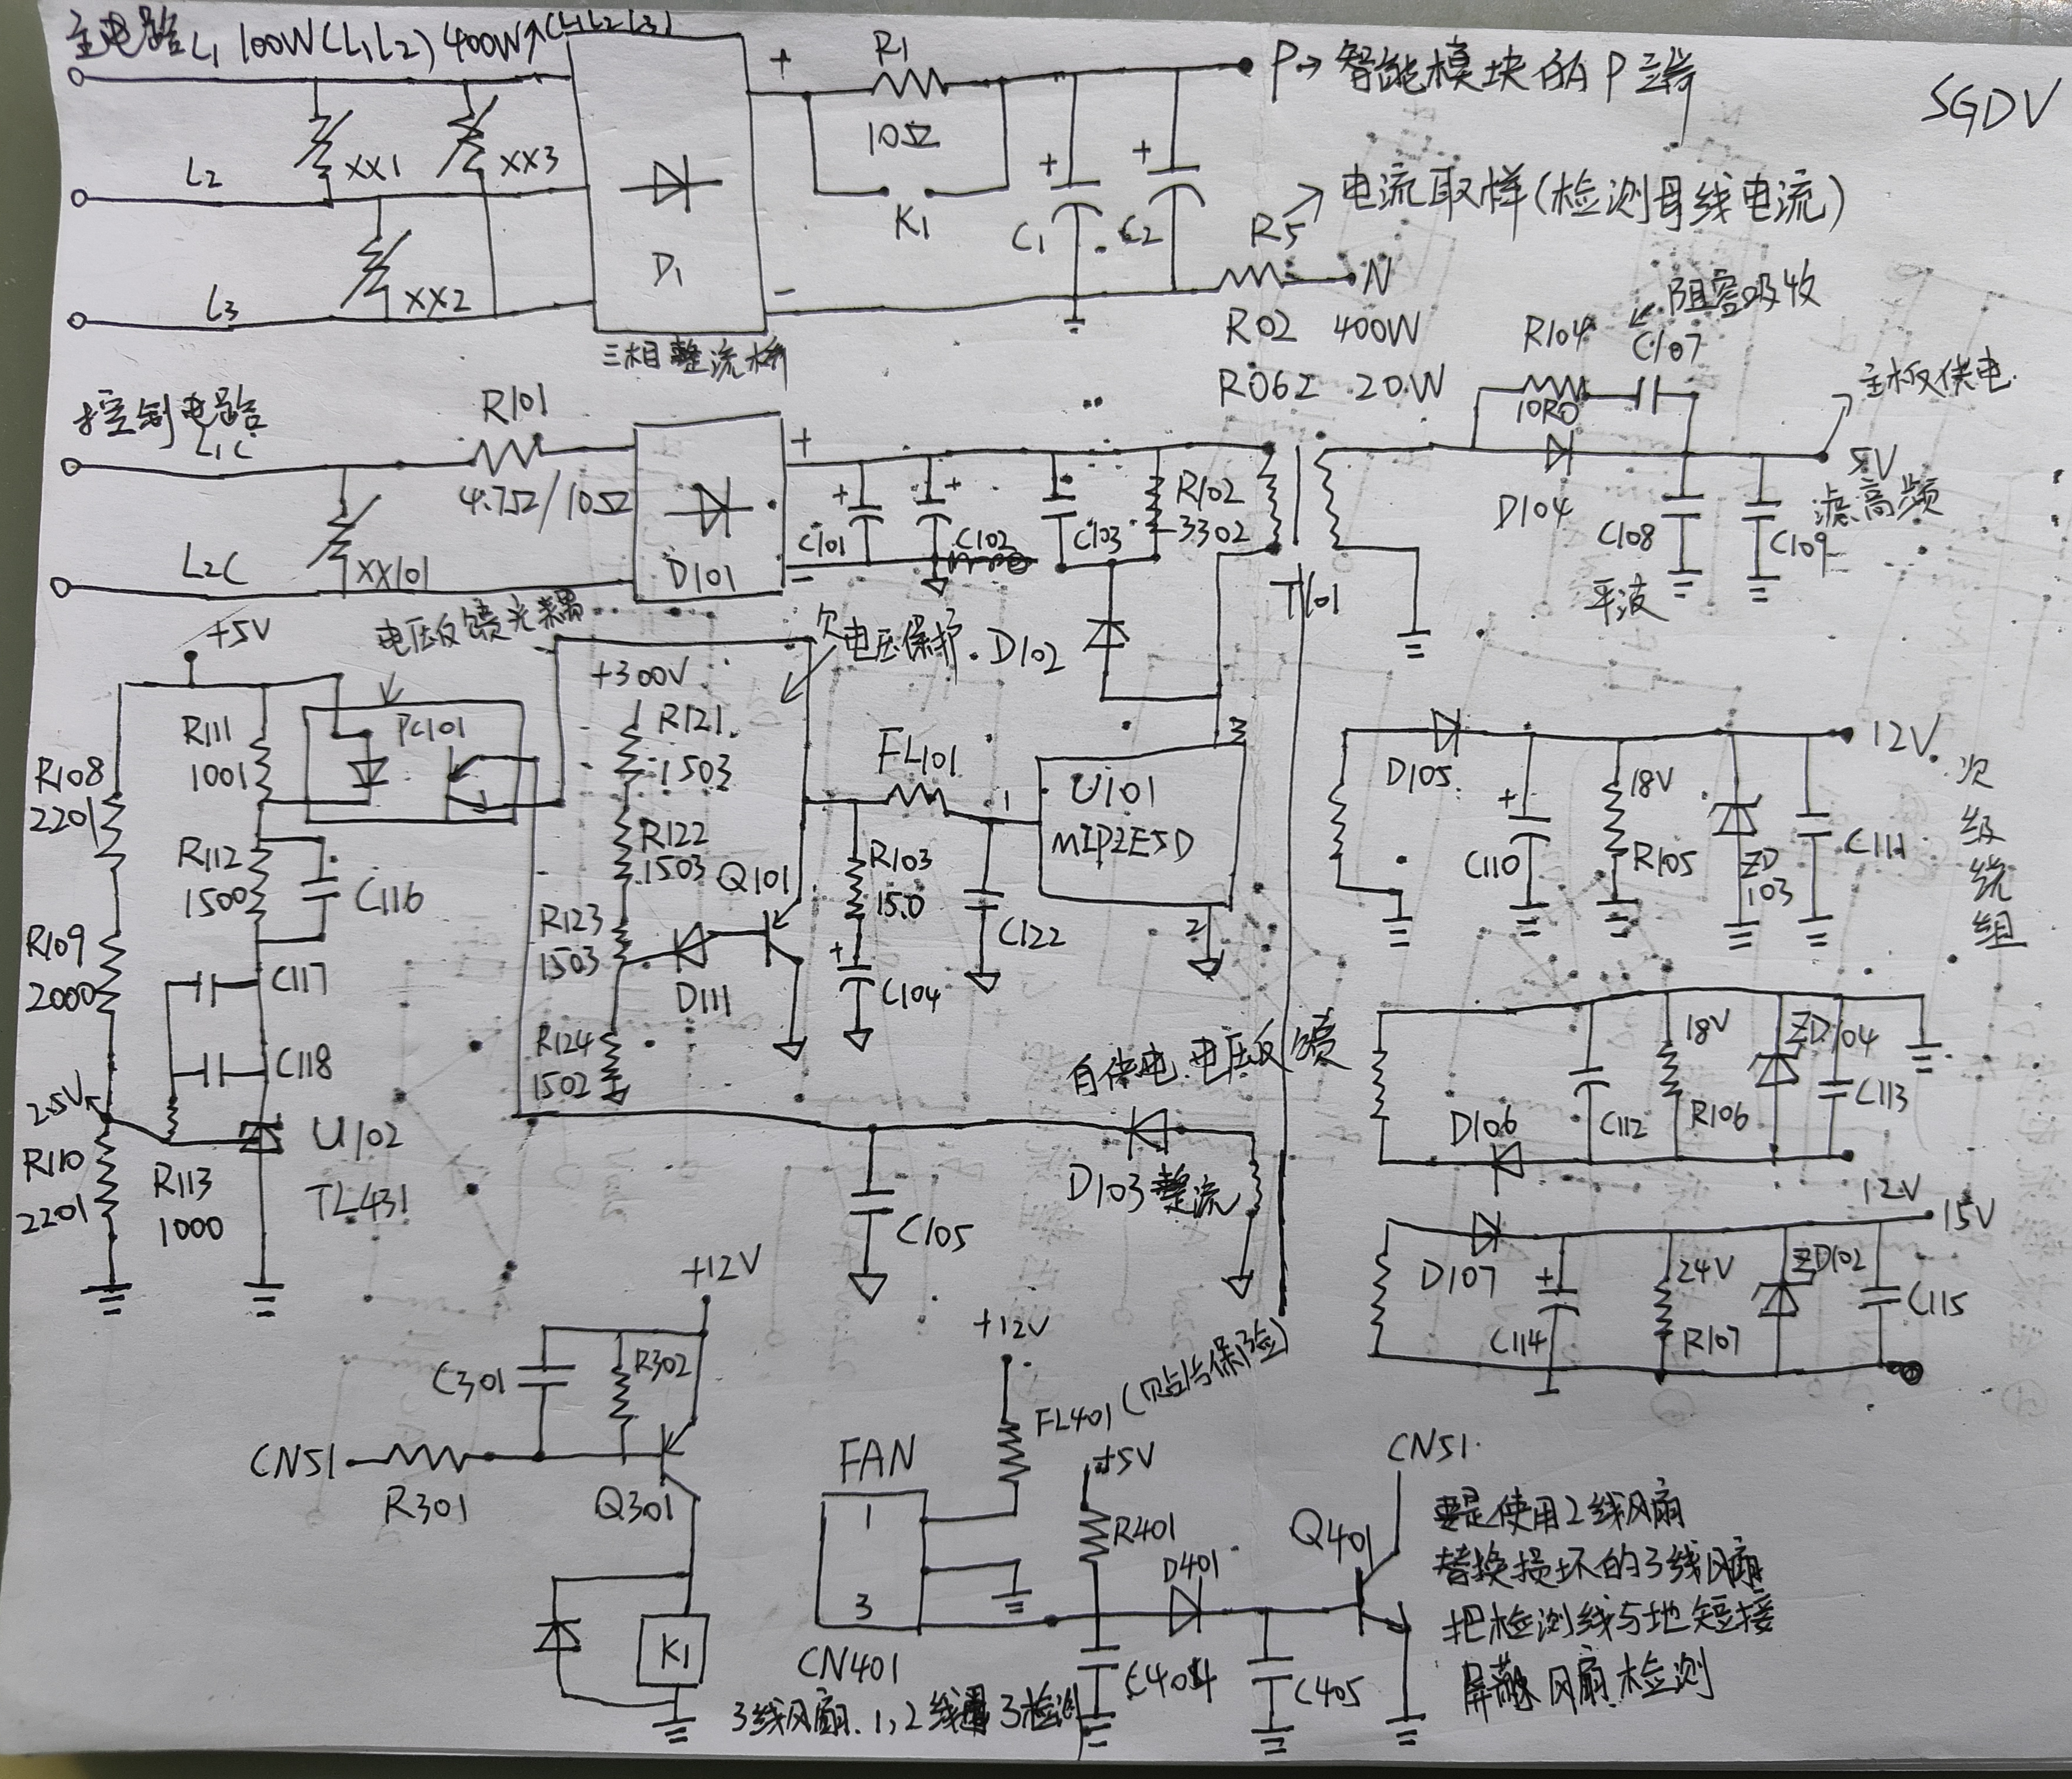 主电路 L1 100W(L1L2) 400W↑(L1L2L3)
R1
10Ω
K1
+
-
P→智能模块的P端
SGDV
L2
XX1
XX3
XX2
L3
D1
三相整流桥
+
C1
+
C2
R5→电流取样(检测母线电流)
N
R02 400W
R062 20W
控制电路
L1C
R101
4.7Ω/10Ω
XX101
L2C
D101
+
-
+
C101
+
C102
C103
R102
3302
T101
阻容吸收
R104
10R0
C107
D104
主板供电
5V
滤高频
C108
C109
平波
+5V
电压反馈光耦
PC101
R111
1001
R108
2201
R112
1500
C116
R109
2000
C117
C118
2.5V
R110
2201
R113
1000
U102
TL431
欠电压保护
+300V
R121
1503
R122
1503
R123
1503
R124
1502
Q101
D111
D102
FL101
R103
15.0
+
C104
C122
1
3
U101
MIP2E5D
2
自供电.电压反馈
D103整流
C105
D105
12V
+
C110
18V
R105
ZD
103
C111
次级绕组
18V
ZD104
D106
C112
R106
C113
12V
15V
D107
+
C114
24V
R107
ZD102
C115
+12V
C301
R302
CN51
R301
Q301
K1
+12V
FL401(贴片保险)
FAN
1
3
CN401
3线风扇.1,2线 3检测
+5V
R401
D401
C404
C405
Q401
CN51
要是使用2线风扇
替换损坏的3线风扇
把检测线与地短接
屏蔽风扇检测